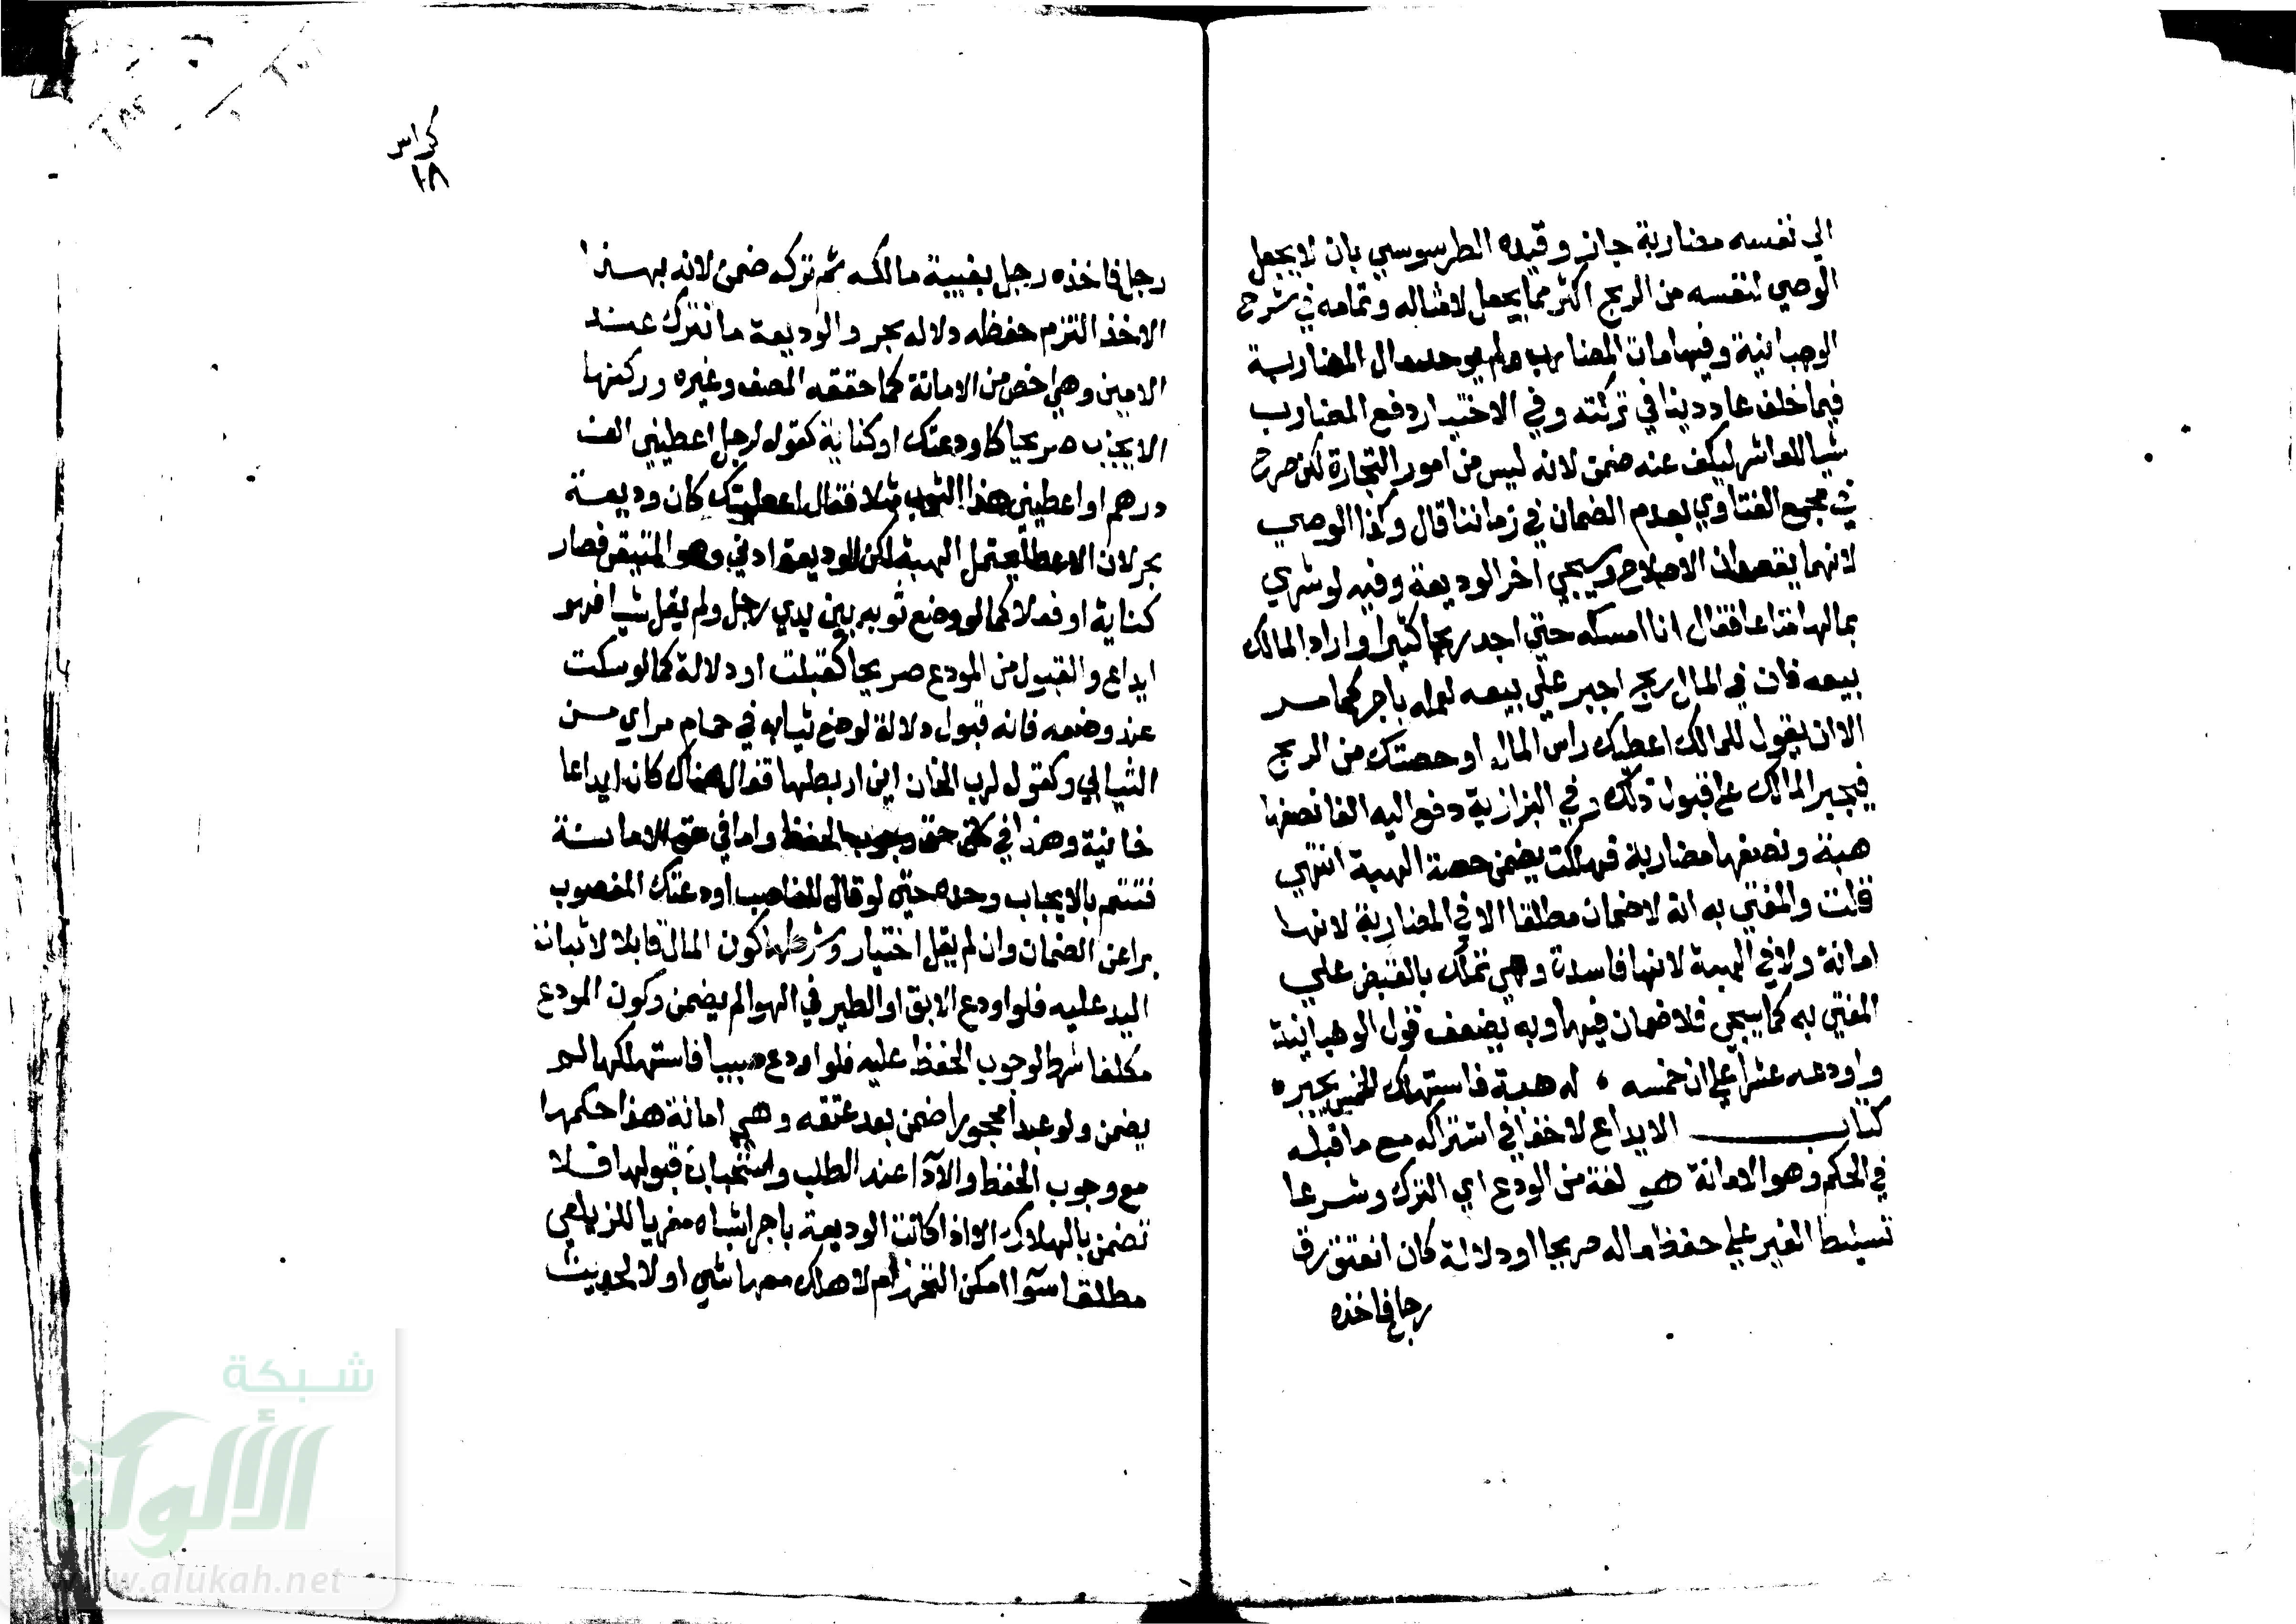 الى نفسه مضاربة جاز وقيده الطرسوسي بان لا يجعل
الوصي لنفسه من الربح اكثر مما يجعل لامثاله وتمامه في شرح
الوهبانية وفيها مات المضارب ولم يوجد مال المضاربة
فيما خلف عاد دينا في تركته وفي الاختيار دفع المضارب
شيا للعاشر ليكف عنه ضمن لانه ليس من امور التجارة لكن صرح
في مجمع الفتاوي بعدم الضمان في زماننا قال وكذا الوصي
لانهما يقصدان الاصلاح وسيجي اخر الوديعة وفيه لو شري
بمالها متاعا فقال انا امسكه حتي اجد ربحا كثيرا واراد المالك
بيعه فان في المال ربح اجبر علي بيعه لعمله باجر كما مر
الا ان يقول للمالك اعطيك راس المال او حصتك من الربح
فيجبر المالك على قبول ذلك وفي البزازية دفع اليه الفا نصفها
هبة ونصفها مضاربة فهلكت يضمن حصة الهبة انتهي
قلت والمفتي به انه لا ضمان مطلقا لا في المضاربة لانها
امانة ولا في الهبة لانها فاسدة وهي تملك بالقبض علي
المفتي به كما سيجي فلا ضمان فيها وبه يضعف قول الوهبانية
واودعه عشرا علي ان خمسه ، له هبة فاستهلك الخمس يخبره
كتاب الايداع لا خفا في اشتراكه مع ما قبله
في الحكم وهو الامانة هو لغة من الودع اي الترك وشرعا
تسليط الغير علي حفظ ماله صريحا او دلالة كان انفتق زق
رجل فاخذه
كراس
١٨
رجل فاخذه رجل بغيبة مالكه ثم تركه ضمن لانه بهذا
الاخذ التزم حفظه دلاله بحر والوديعة ما تترك عند
الامين وهي اخص من الامانة كما حققه المصنف وغيره وركنها
الايجاب صريحا كاودعتك او كناية كقوله لرجل اعطيني الف
درهم او اعطيني هذا الثوب مثلا فقال اعطيتك كان وديعة
بحر لان الاعطا يحتمل الهبة لكن الوديعة ادني وهو المتيقن فصار
كناية او فعلا كما لو وضع ثوبه بين يدي رجل ولم يقل شيا فهو
ايداع والقبول من المودع صريحا كقبلت او دلالة كما لو سكت
عند وضعه فانه قبول دلالة لوضع ثيابه في حمام مراي من
الثيابي وكقوله لرب الخان اين اربطها فقال هناك كان ايداعا
خانية وهذا في حق وجوب الحفظ واما في حق الامانة
فتتم بالايجاب وحده حتي لو قال للغاصب اودعتك المغصوب
برا عن الضمان وان لم يقل اختيار وشرطها كون المال قابلا لاثبات
اليد عليه فلو اودع الابق او الطير في الهوا لم يضمن وكون المودع
مكلفا شرط لوجوب الحفظ عليه فلو اودع صبيا فاستهلكها لم
يضمن ولو عبدا محجورا ضمن بعد عتقه وهي امانة هذا حكمها
مع وجوب الحفظ والادآ عند الطلب واستحباب قبولها فلا
تضمن بالهلاك الا اذا كانت الوديعة باجر اشباه معزيا للزيلعي
مطلقا سوآ امكن التحرز ام لا هلك معها شي او لا لحديث
شبكة
الألوكة
www.alukah.net